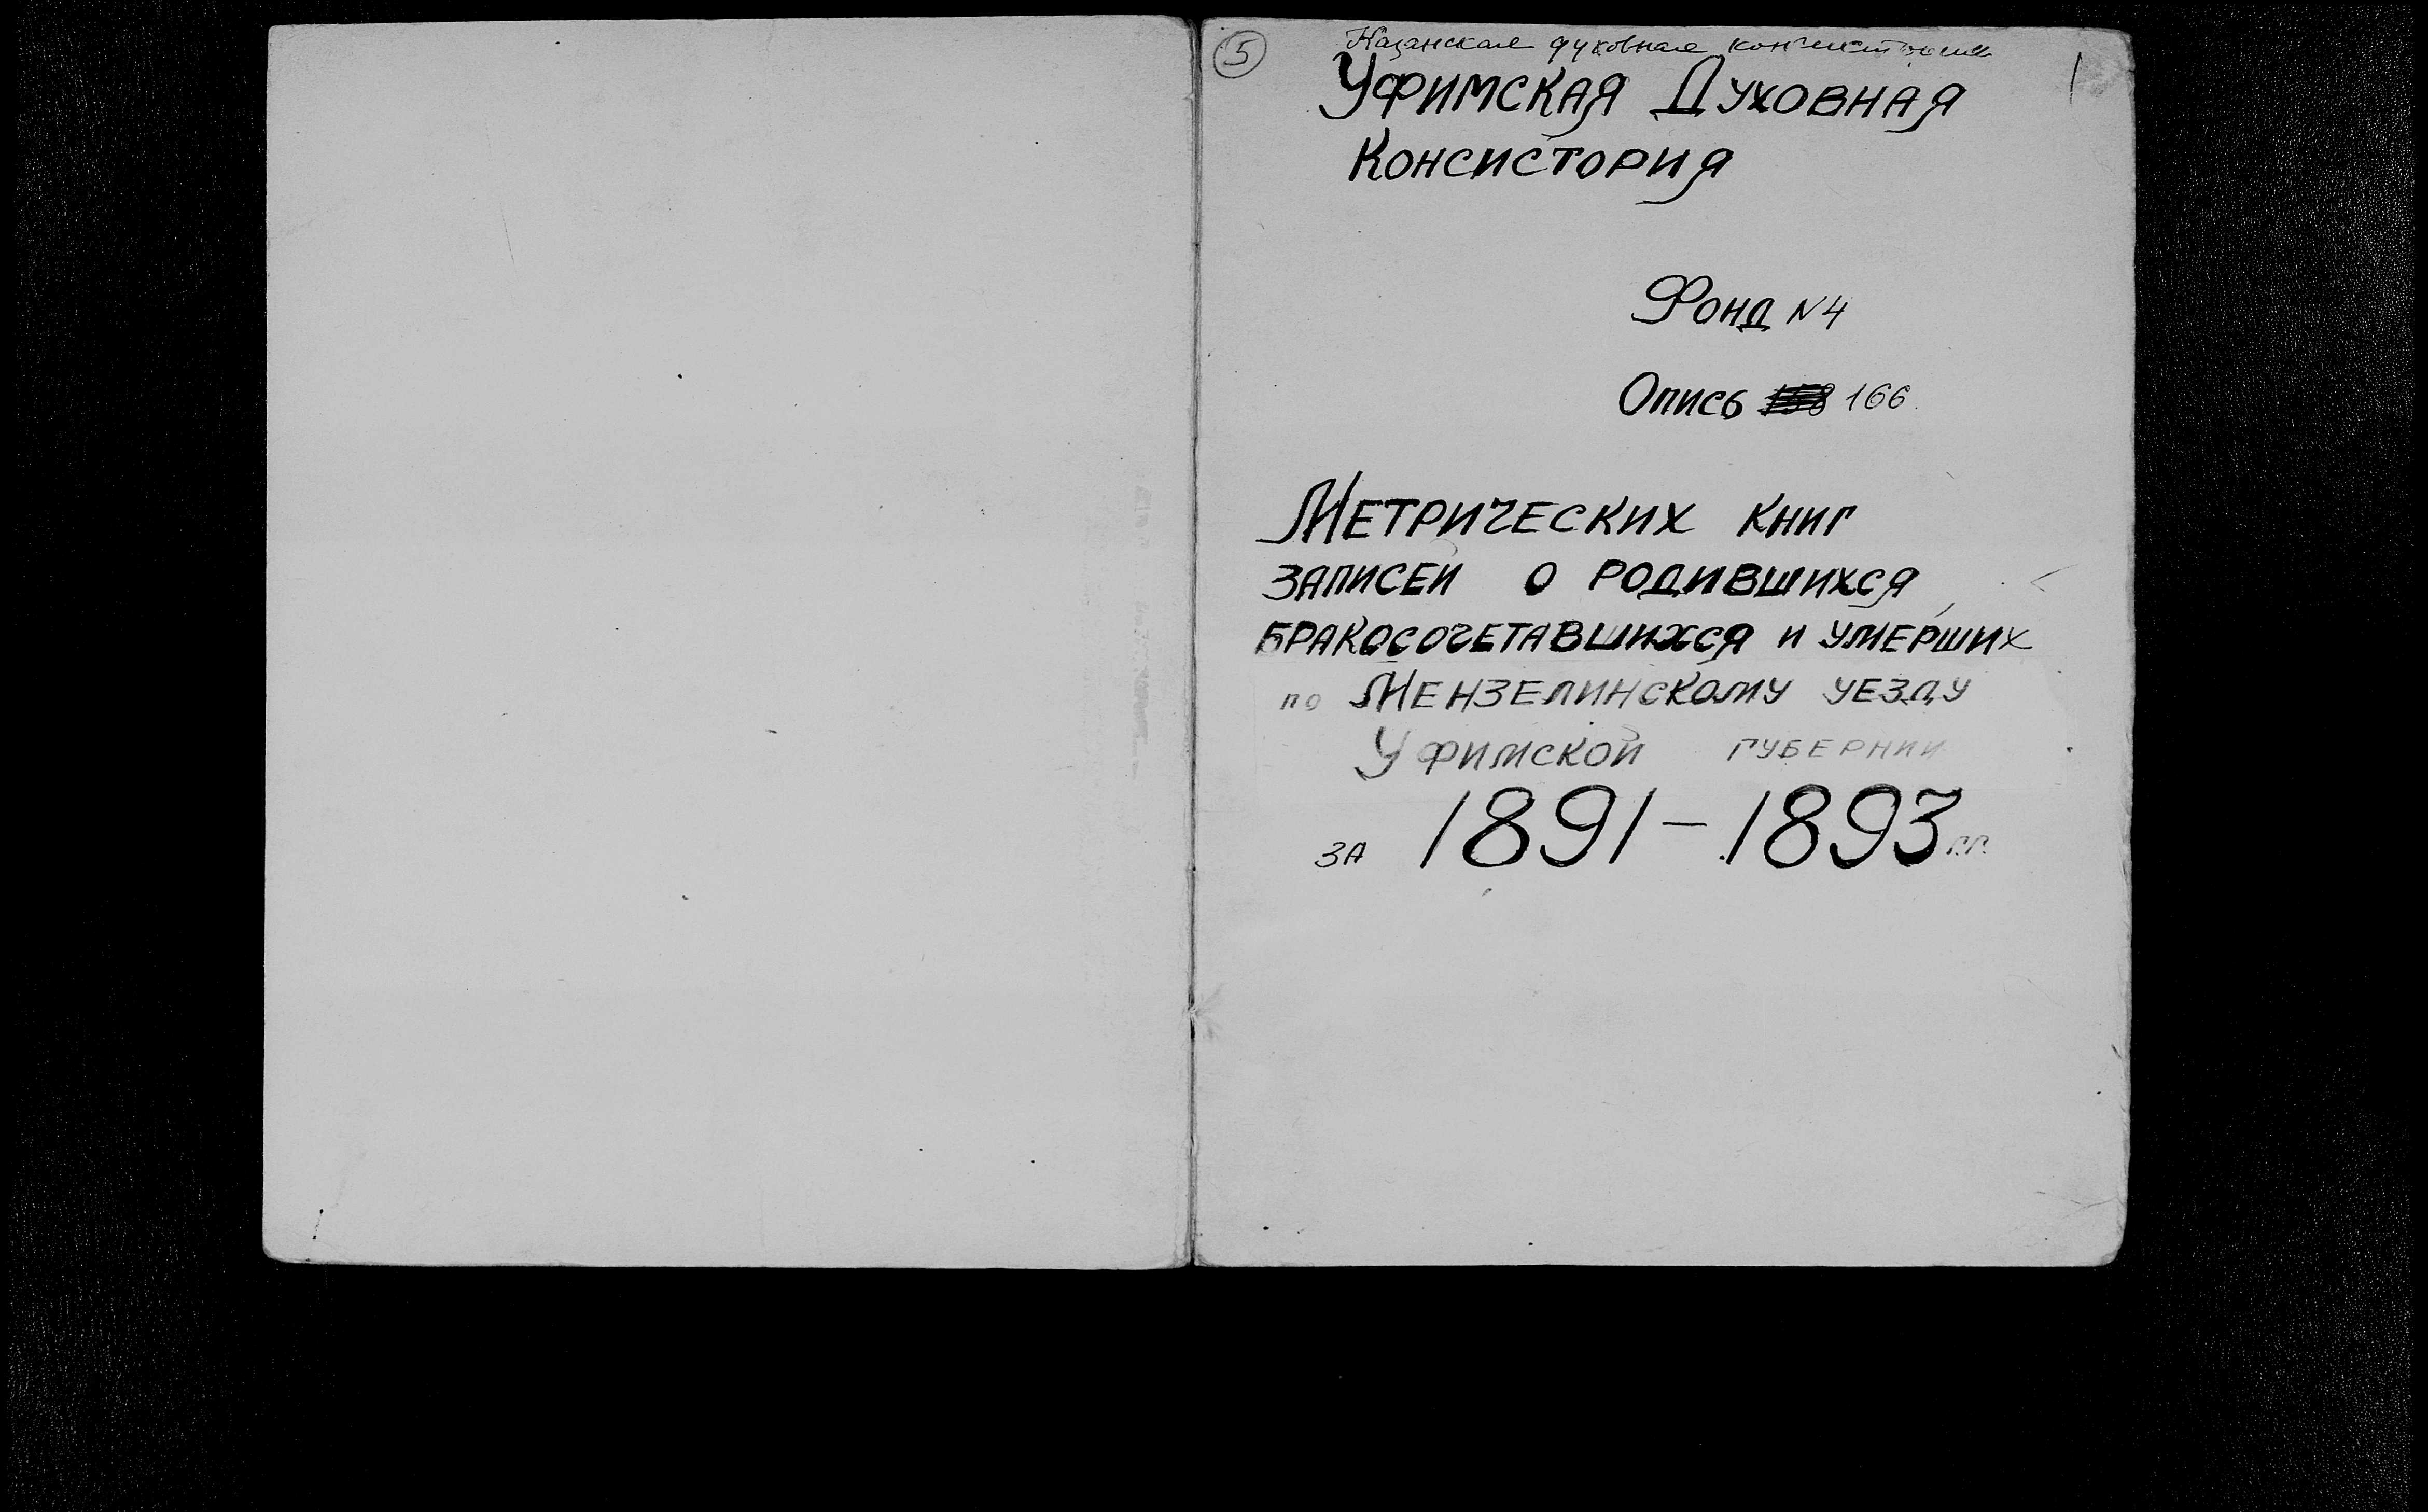 5
Казанская духовная консистория
1
Уфимская Духовная
Консистория
Фонд N 4
Опись 158 166
Метрических книг
записей о родившихся,
бракосочетавшихся и умерших
по Мензелинскому уезду
Уфимской губернии
за 1891-1893 г.г.